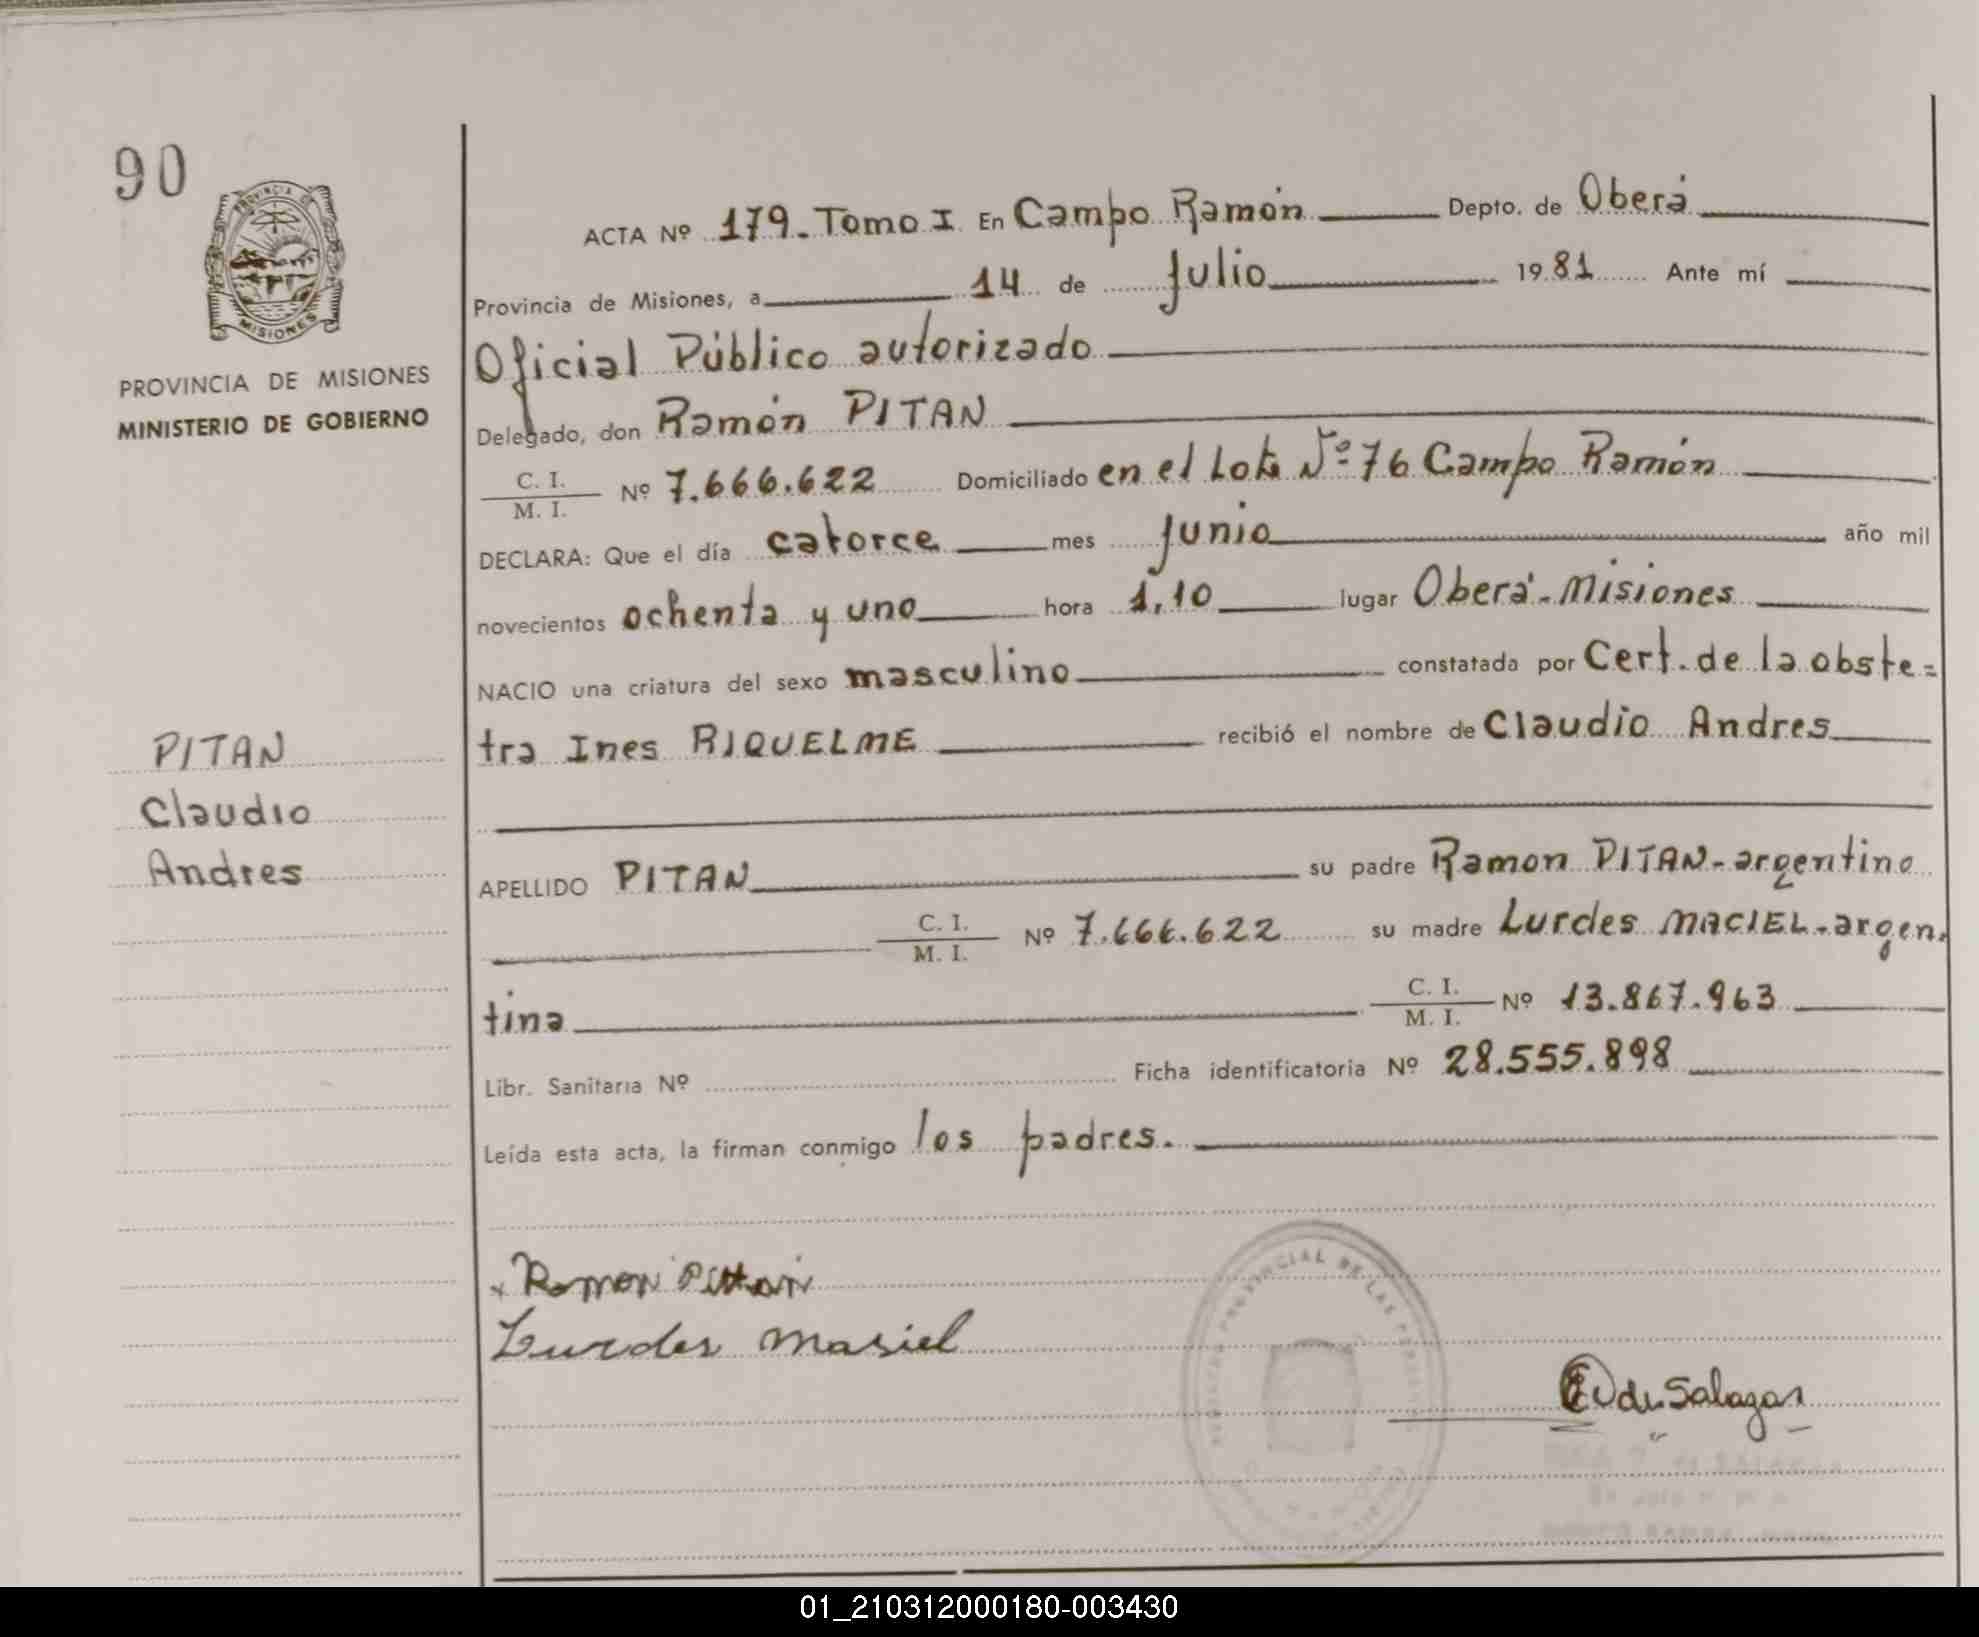 90
PROVINCIA DE MISIONES
PROVINCIA DE MISIONES
MINISTERIO DE GOBIERNO
PITAN
Claudio
Andres
ACTA Nº 179. Tomo I. En Campo Ramón Depto. de Oberá
Provincia de Misiones, a 14 de Julio 1981 Ante mí
Oficial Público autorizado
Delegado, don Ramón PITAN
C. I.
M. I. Nº 7.666.622 Domiciliado en el Lote Nº 76 Campo Ramón
DECLARA: Que el día catorce mes Junio año mil
novecientos ochenta y uno hora 1,10 lugar Oberá - Misiones
NACIO una criatura del sexo masculino constatada por Cert. de la obste=
tra Ines RIQUELME recibió el nombre de Claudio Andres
APELLIDO PITAN su padre Ramon PITAN - argentino
C. I.
M. I. Nº 7.666.622 su madre Lurdes MACIEL - argen.
tina C. I.
M. I. Nº 13.867.963
Libr. Sanitaria Nº Ficha identificatoria Nº 28.555.898
Leída esta acta, la firman conmigo los padres.
x Ramon Pittan
Lurdes Masiel
de Salazar
01_210312000180-003430